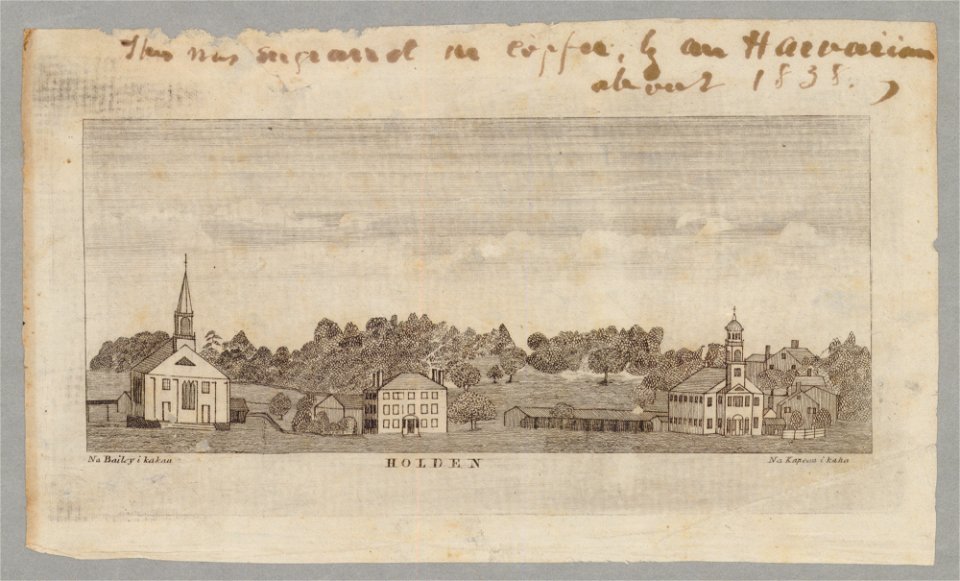 This was engraved on copper, by an Hawaiian
about 1838.
Na Bailey i kakau
HOLDEN
Na Kapeau i kaha